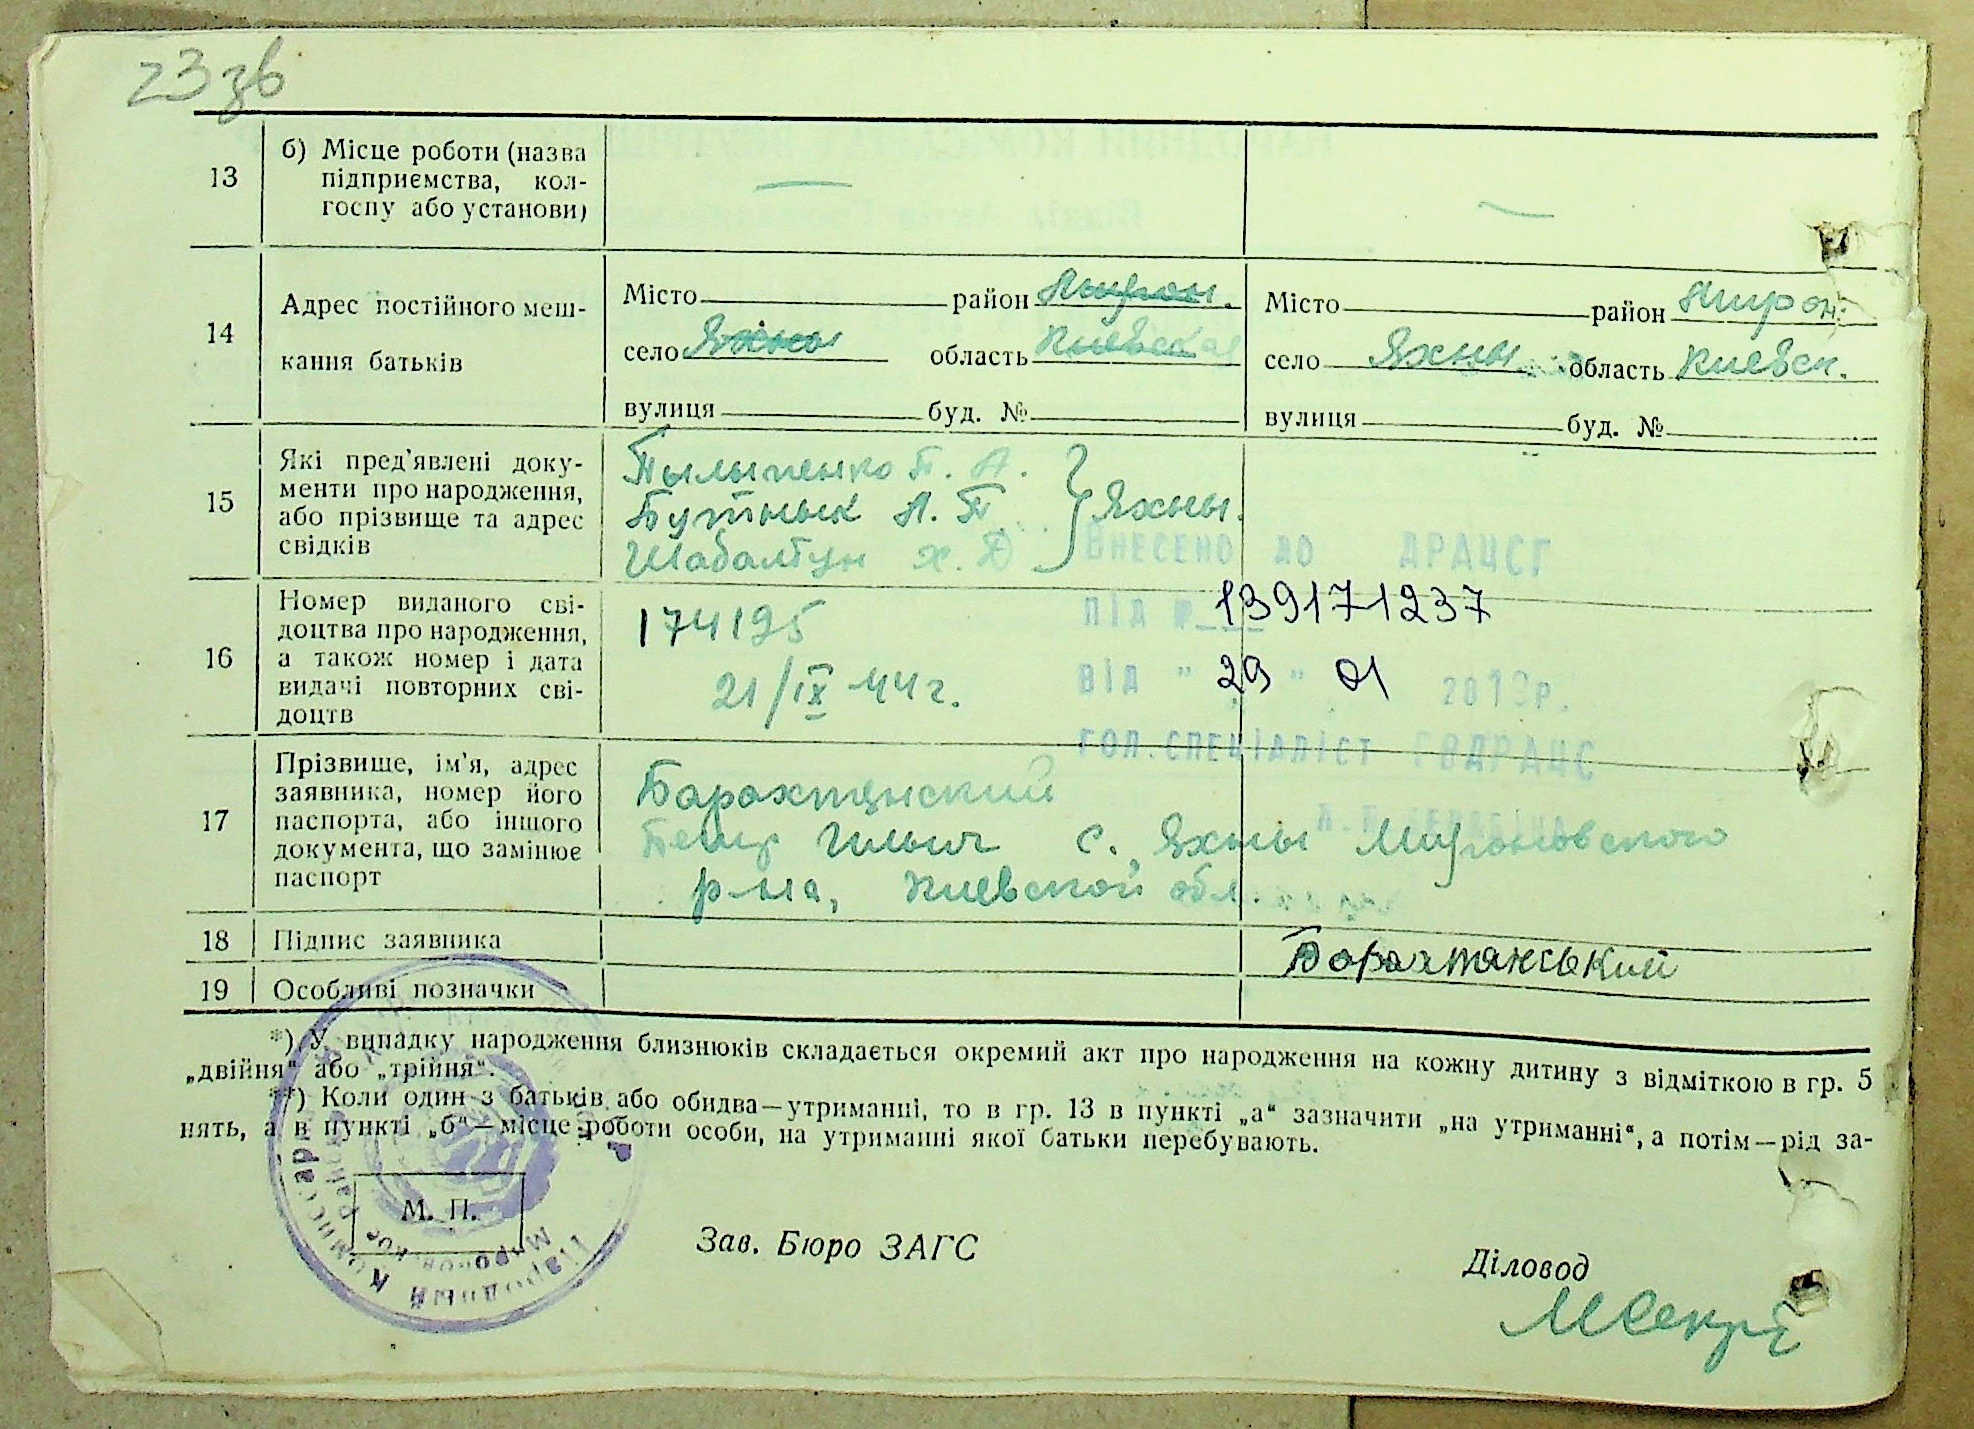 23 зв
13
б) Місце роботи (назва
підприємства, кол-
госпу або установи)
—
—
14
Адрес постійного меш-
кання батьків
Місто район Мирон.
село Яхны область Киевская
вулиця буд. №
Місто район Мирон.
село Яхны область Киевск.
вулиця буд. №
15
Які пред'явлені доку-
менти про народження,
або прізвище та адрес
свідків
Пылыпенко П. А.
Бутнык А. П. } Яхны.
Шабалтун х. Д
16
Номер виданого сві-
доцтва про народження,
а також номер і дата
видачі повторних сві-
доцтв
174195
21/IX 44 г.
ВНЕСЕНО ДО ДРАЦСГ
ПІД № 139171237
ВІД " 29 " 01 2019р.
ГОЛ.СПЕЦІАЛІСТ ГВДРАЦС
17
Прізвище, ім'я, адрес
заявника, номер його
паспорта, або іншого
документа, що замінює
паспорт
Барахтянский
Ильич с. Яхны Мироновского
р-на, Киевской обл.
18
Підпис заявника
Борахтянський
19
Особливі позначки
*) У випадку народження близнюків складається окремий акт про народження на кожну дитину з відміткою в гр. 5
„двійня“ або „трійня“.
**) Коли один з батьків або обидва—утриманні, то в гр. 13 в пункті „а“ зазначити „на утриманні“, а потім—рід за-
нять, а в пункті „б“—місце роботи особи, на утриманні якої батьки перебувають.
М. П.
Народный Комиссариат
Зав. Бюро ЗАГС
Діловод